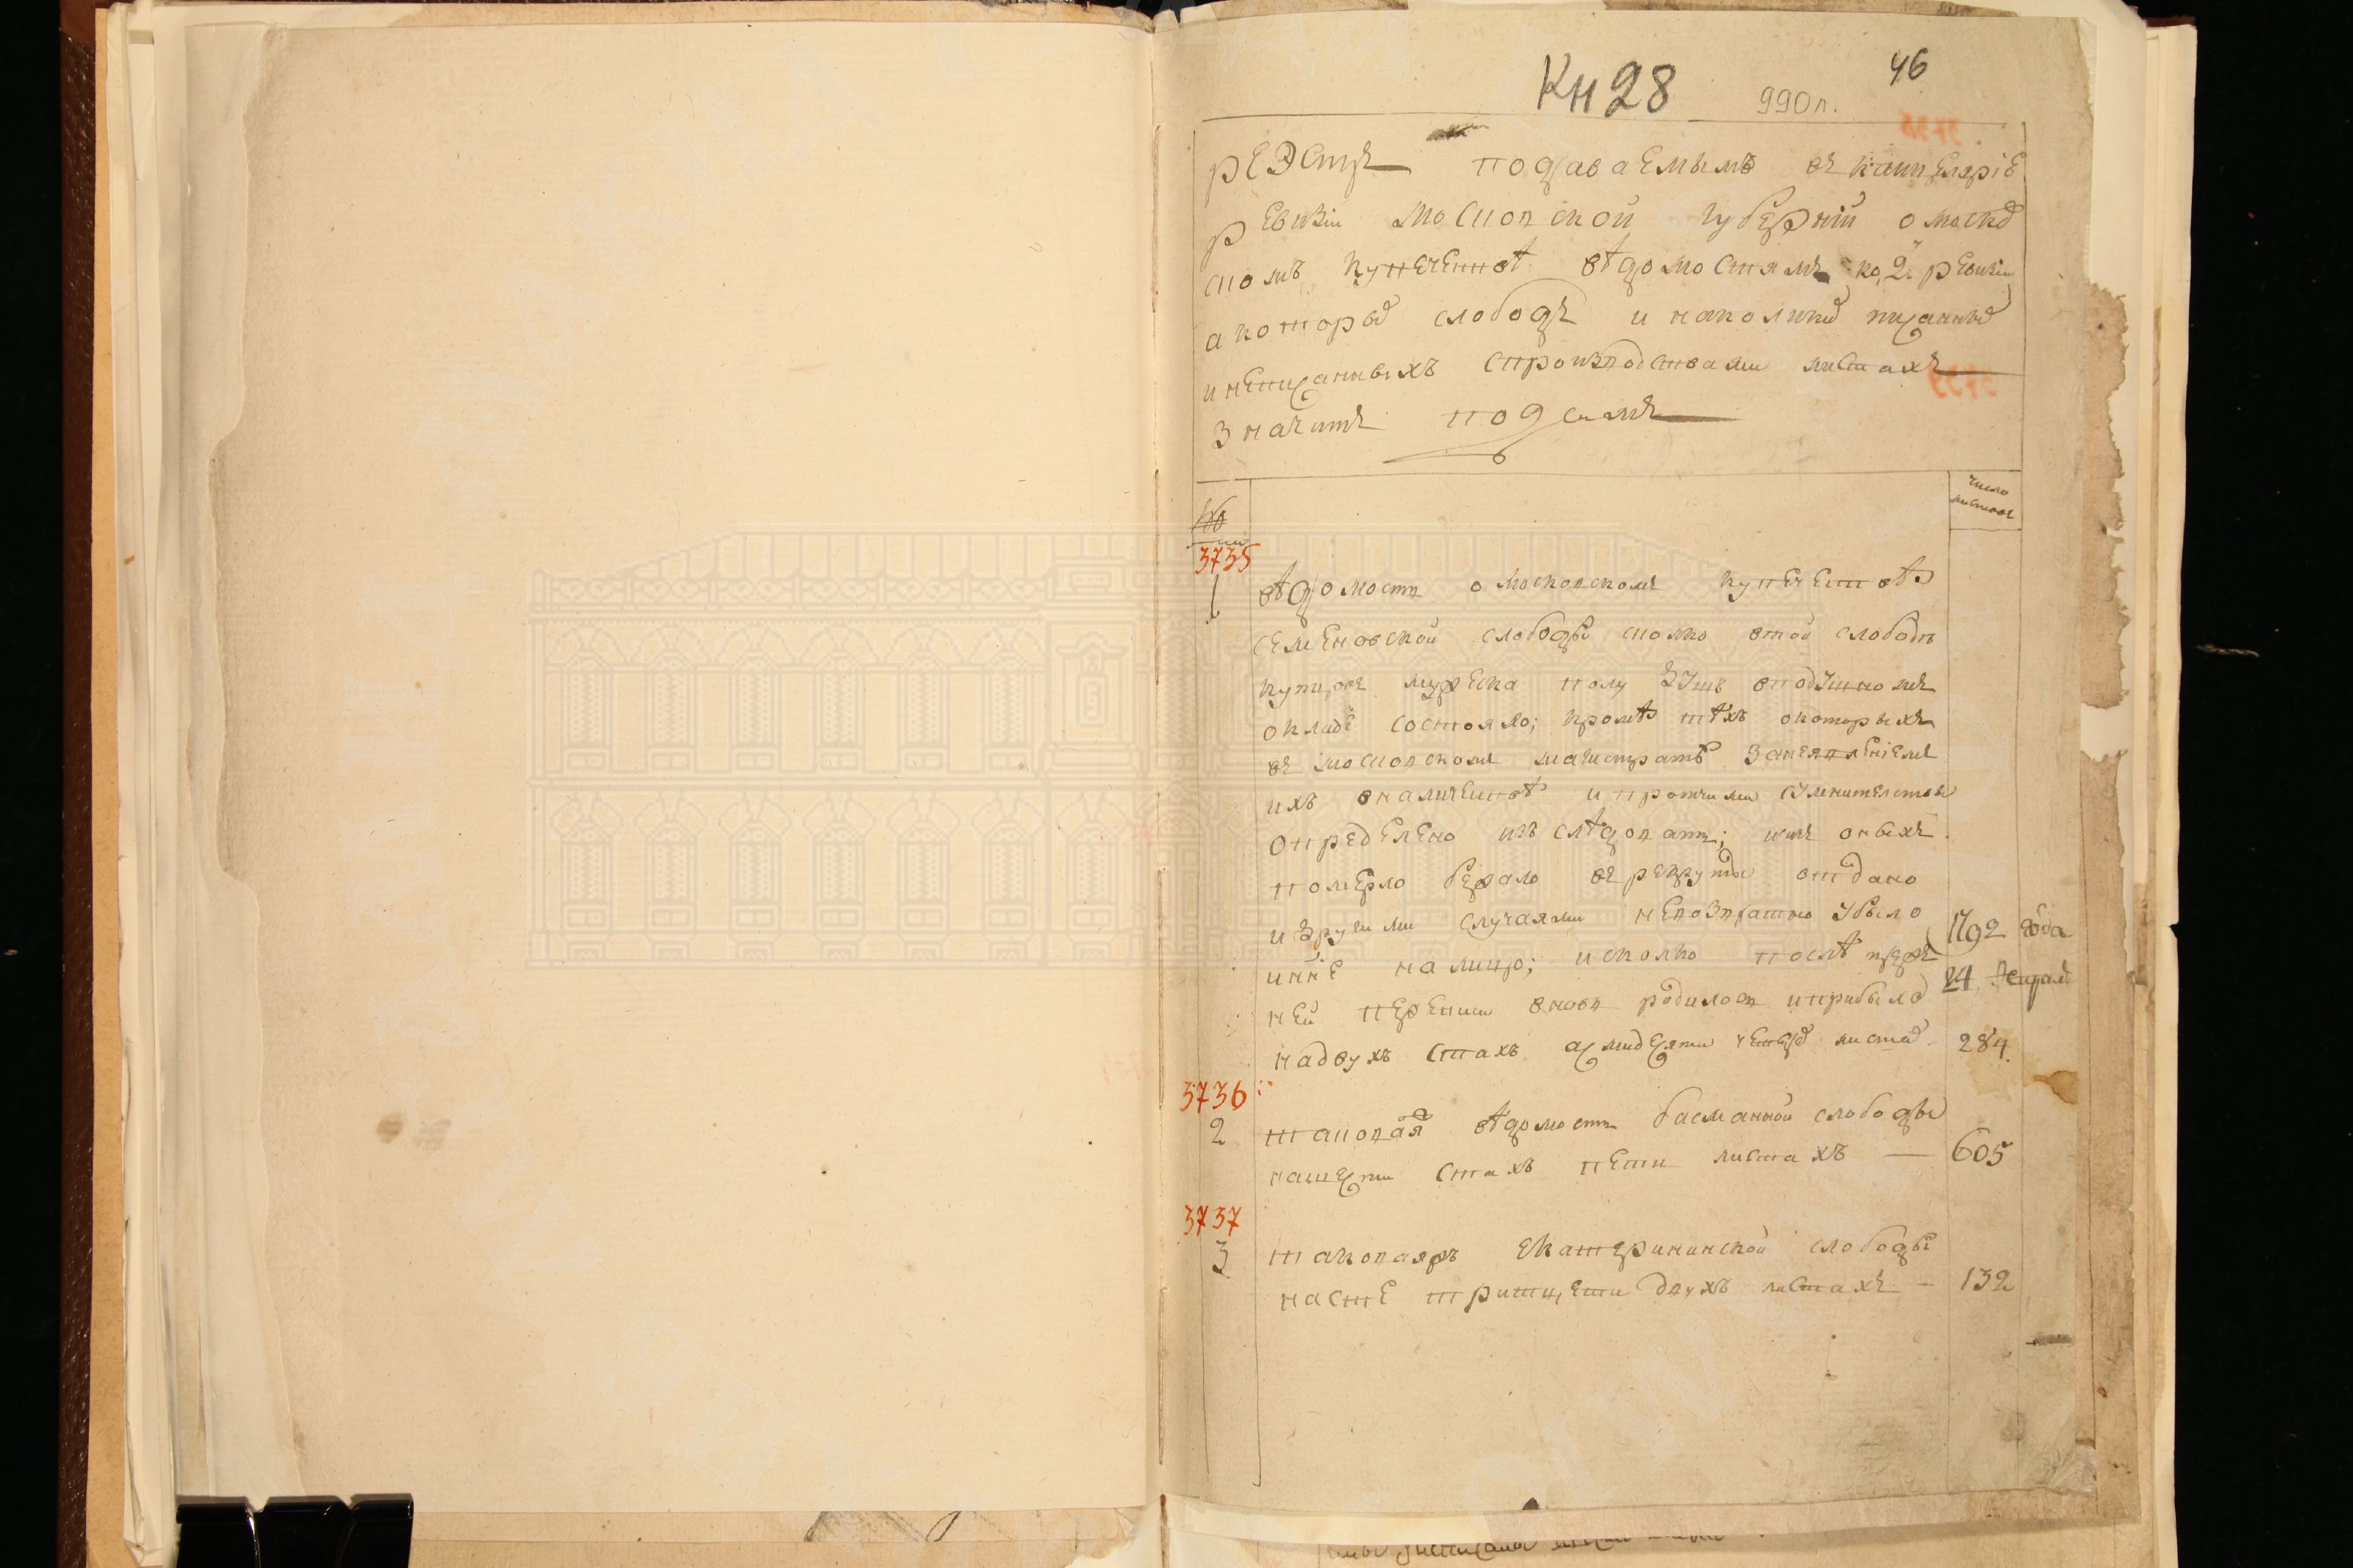 Кн 28 990 л. 46
реэстръ подаваемымъ въ канцелярiе
ревизiи московской губернiи о москов
скомъ купечествѣ вѣдомостямъ ко 2й ревизiи
а которыя слободъ и на коликихъ писанные
и неписанныхъ спроизводствами листахъ
значитъ под симъ
число листовъ
3735
1
вѣдомость о московскомъ купечествѣ
семеновской слободы сколко втой слободѣ
купцовъ мужеска полу душъ вподушномъ
окладе состояло; кроме тѣхъ о которыхъ
въ московском магистратѣ заявленiем
ихъ в купечествѣ и протчими сумнителствы
определено изслѣдовать; исъ оныхъ
померло бежало въ рекруты отдано
и другими случаями невозвратно убыло
и ннѣ налицо; и сколко послѣ преж
ней переписи вновь родилось и прибыло
на двухъ стахъ осмидесяти четырех листах 284
1792 года
24
3736
2
таковая вѣдомость басманной слободы
на шести стахъ пети листахъ — 605
3737
3
таковаяжъ екатерининской слободы
на сте тритцети двухъ листахъ — 132